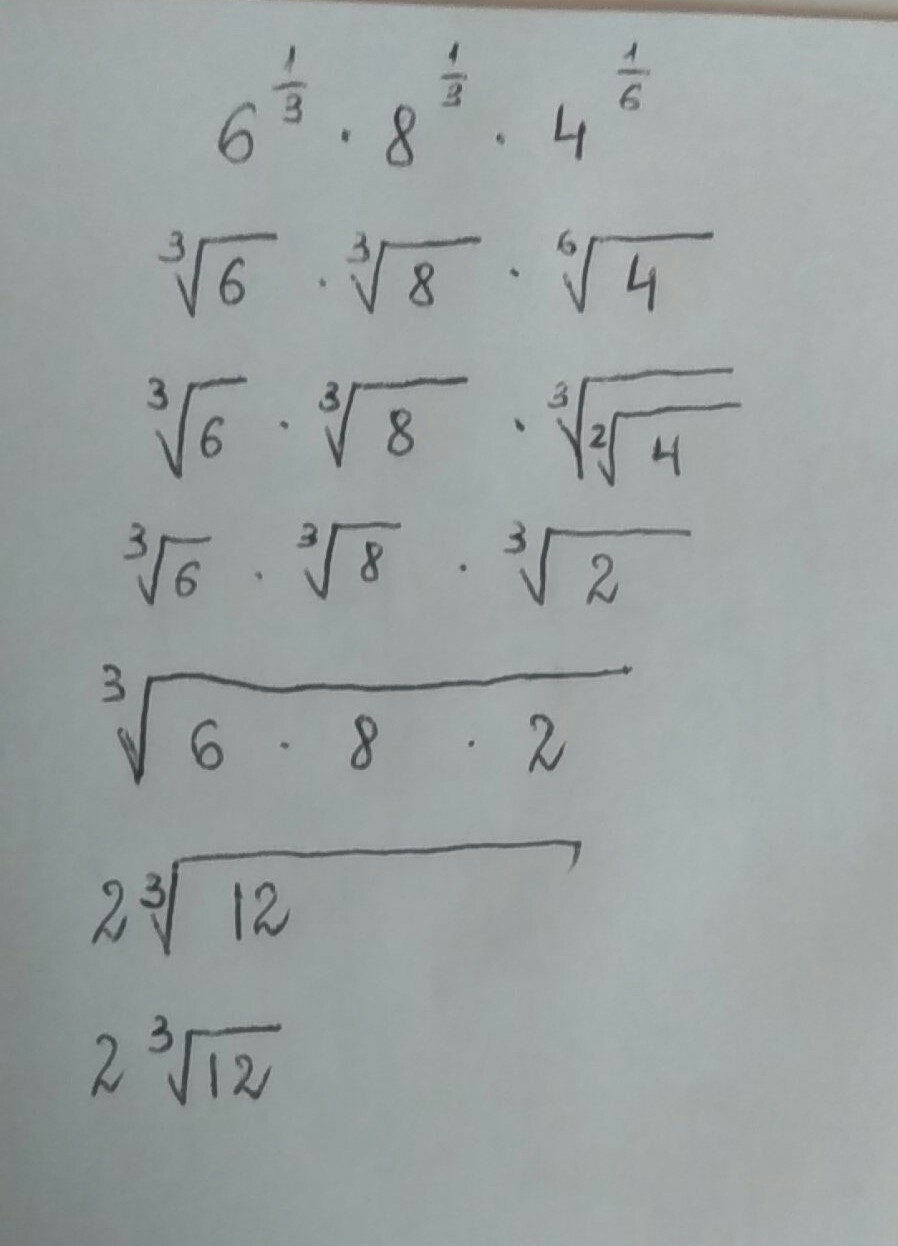 6^{\frac{1}{3}} · 8^{\frac{1}{3}} · 4^{\frac{1}{6}}
\sqrt[3]{6} · \sqrt[3]{8} · \sqrt[6]{4}
\sqrt[3]{6} · \sqrt[3]{8} · \sqrt[3]{\sqrt[2]{4}}
\sqrt[3]{6} · \sqrt[3]{8} · \sqrt[3]{2}
\sqrt[3]{6 · 8 · 2}
2\sqrt[3]{12}
2\sqrt[3]{12}